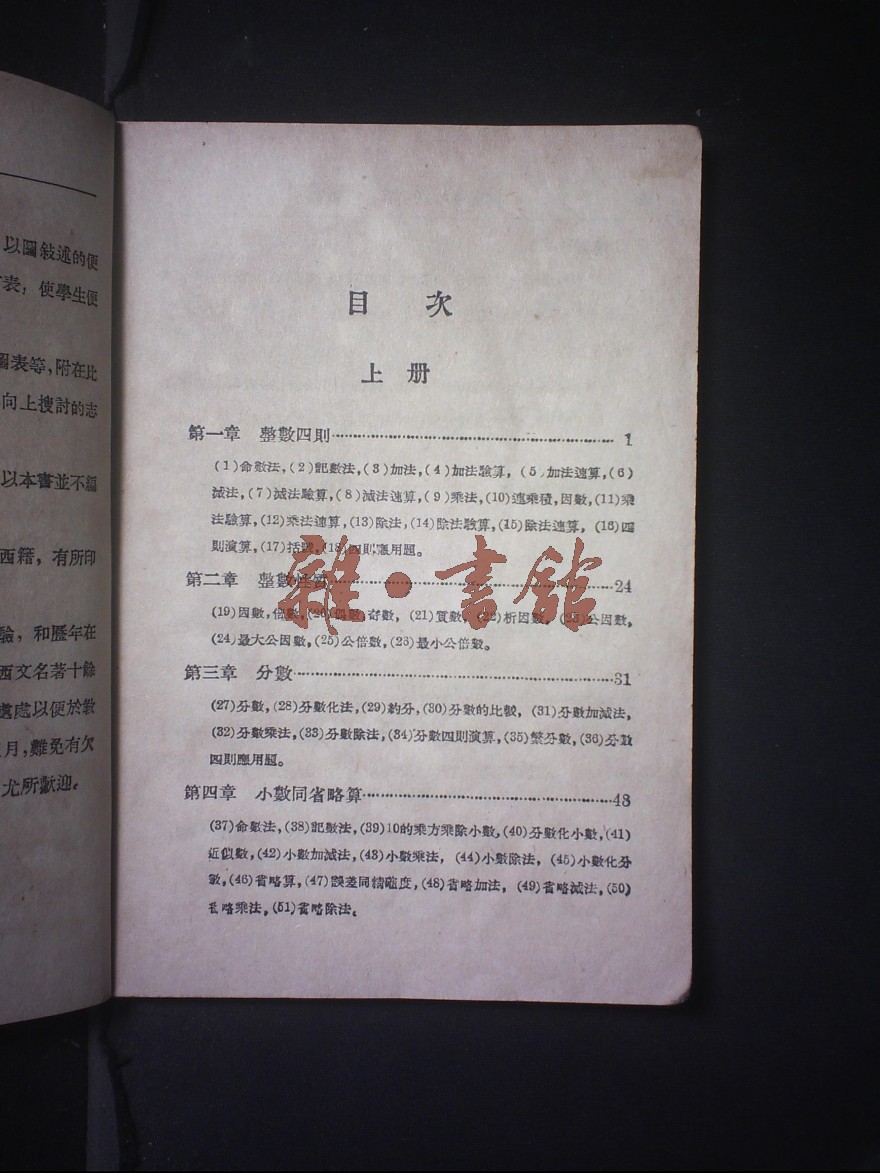 以圖敍述的便
表，使學生便
圖表等，附在比
向上搜討的志
以本書並不編
西籍，有所印
驗，和歷年在
西文名著十餘
處處以便於敎
月，難免有欠
尤所歡迎。
目 次
上 册
第一章 整數四則 1
(1)命數法，(2)記數法，(3)加法，(4)加法驗算，(5)加法速算，(6)
減法，(7)減法驗算，(8)減法速算，(9)乘法，(10)連乘積，因數，(11)乘
法驗算，(12)乘法速算，(13)除法，(14)除法驗算，(15)除法速算，(16)四
則演算，(17)括號，(18)四則應用題。
第二章 整數性質 24
(19)因數，倍數，(20)偶數，奇數，(21)質數，(22)析因數，(23)公因數，
(24)最大公因數，(25)公倍數，(26)最小公倍數。
第三章 分數 31
(27)分數，(28)分數化法，(29)約分，(30)分數的比較，(31)分數加減法，
(32)分數乘法，(33)分數除法，(34)分數四則演算，(35)繁分數，(36)分數
四則應用題。
第四章 小數同省略算 48
(37)命數法，(38)記數法，(39)10的乘方乘除小數，(40)分數化小數，(41)
近似數，(42)小數加減法，(43)小數乘法，(44)小數除法，(45)小數化分
數，(46)省略算，(47)誤差同精確度，(48)省略加法，(49)省略減法，(50)
省略乘法，(51)省略除法。
雜·書館